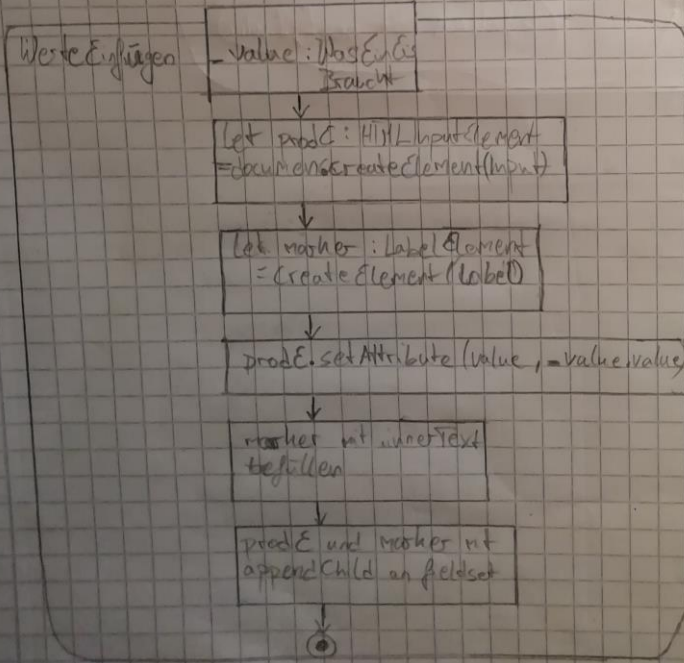 WerteEinfügen
_value : WasEinEis
Braucht
let prodE : HTMLInputElement
=document.createElement(Input)
let marker : LabelElement
= createElement (Label)
prodE.setAttribute (value , _value.value)
marker mit .innerText
befüllen
prodE und marker mit
appendChild an fieldset